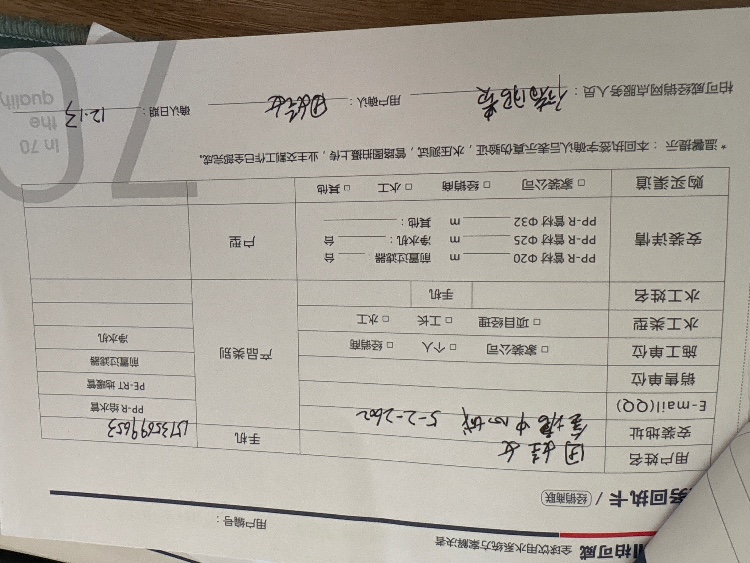 柏可威 全球饮用水系统方案解决者
用户编号：
务回执卡 / 经销商联
用户姓名 手机 15735699653
安装地址 5-2-2602
E-mail(QQ)
销售单位
施工单位 □ 家装公司 □ 个人 □ 经销商
水工类型 □ 项目经理 □ 工长 □ 水工
水工姓名 手机
产品类别
PP-R 给水管
PE-RT 地暖管
前置过滤器
净水机
安装详情
PP-R 管材 Φ20 m 前置过滤器 台
PP-R 管材 Φ25 m 净水机： 台
PP-R 管材 Φ32 m 其他：
户型
购买渠道 □ 家装公司 □ 经销商 □ 水工 □ 其他
*温馨提示：本回执签字确认后表示真伪验证，水压测试，管路图拍摄上传，业主交割工作已全部完成。
柏可威经销网点服务人员： 用户确认： 确认日期： 12.13
In 70
the
quality
70